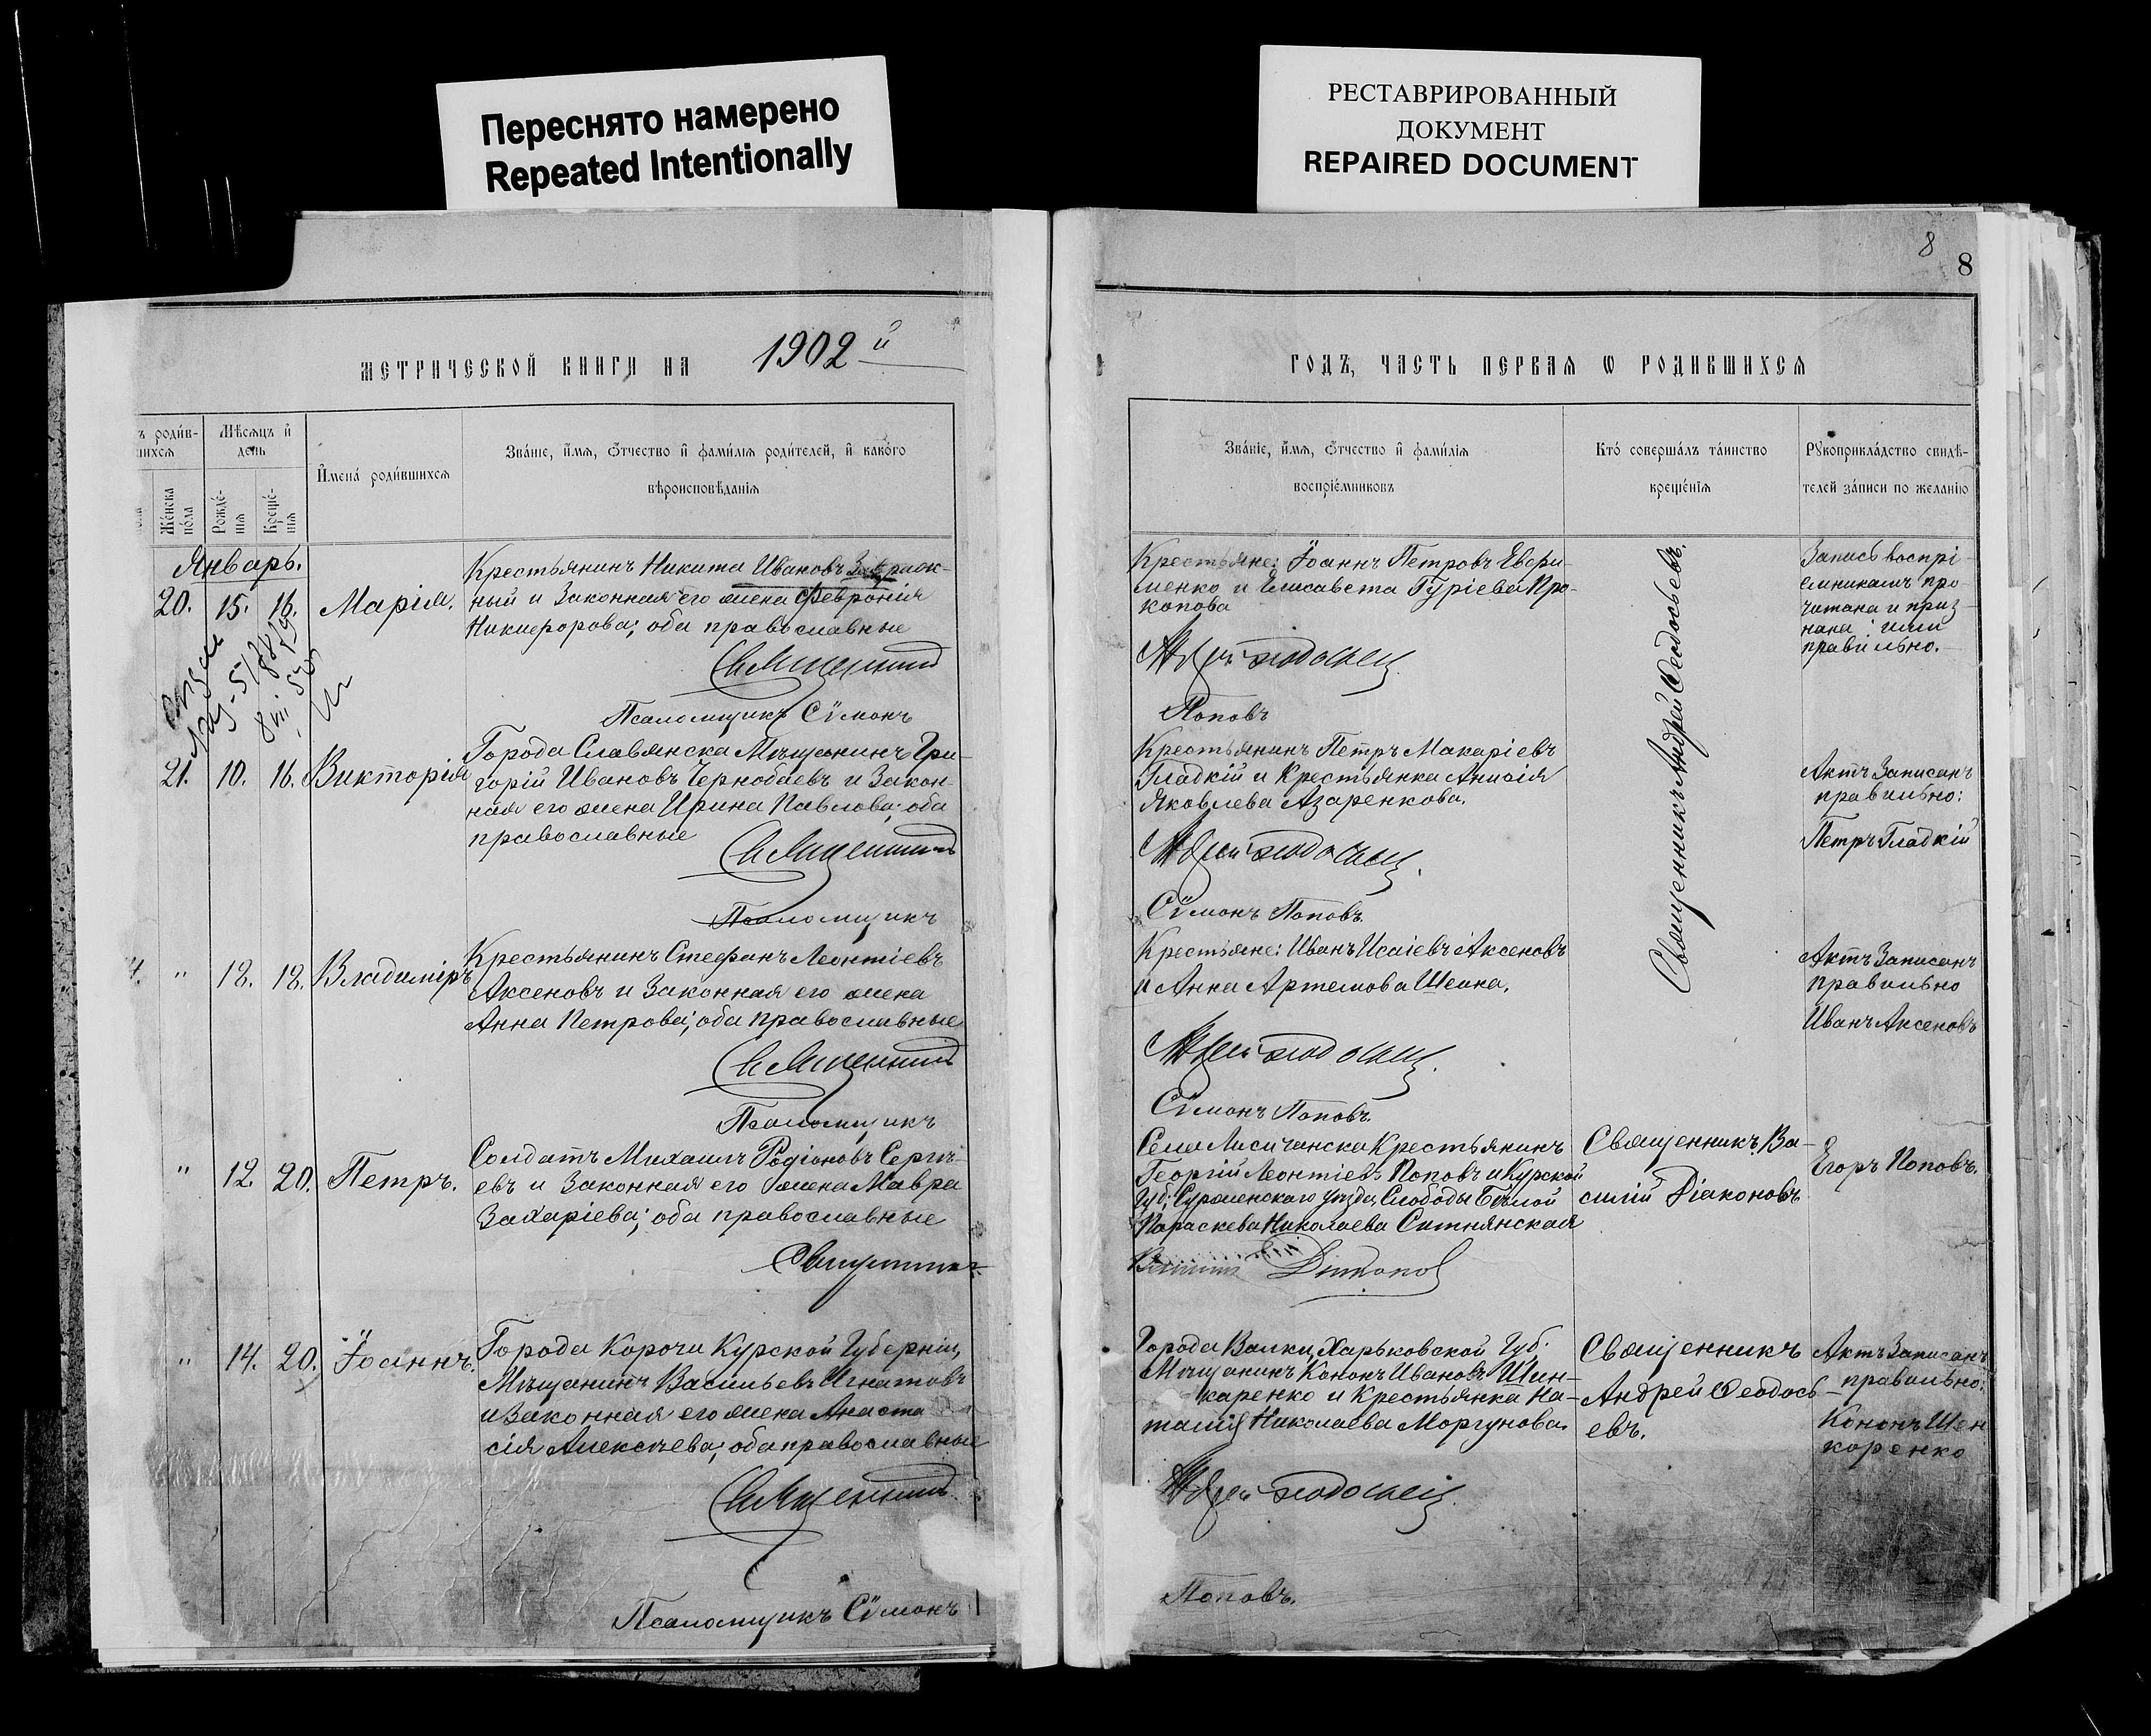 Переснято намерено
Repeated Intentionally
РЕСТАВРИРОВАННЫЙ
ДОКУМЕНТ
REPAIRED DOCUMENT
8
8
МЕТРИЧЕСКОЙ КНИГИ НА 1902 й
ГОДЪ, ЧАСТЬ ПЕРВАЯ Ѡ РОДИВШИХСЯ
Мѣсяцъ и
день
Же́нска
по́ла
Рожде́-
нія
Креще́-
нія
Имена́ роди́вшихся
Зва́ніе, и́мя, ѻ҆́тчество и҆ фами́лія роди́телей, и҆ како́го
вѣроисповѣ́данія
Зва́ніе, и́мя, ѻ҆́тчество и҆ фами́лія
воспрїе́мниковъ
Кто́ соверша́лъ та́инство
креще́нія
Рꙋкоприкла́дство свидѣ́-
телей за́писи по жела́нію
Январь.
20. 15. 16. Марія.
Крестьянинъ Никита Ивановъ
ный и законная его жена Февронія
Никифорова; оба православные
Псаломщикъ Сѵмонъ
Крестьяне: Іоаннъ Петровъ Евфи-
менко и Елисавета Гуріева Про-
копова
Поповъ
Священникъ Андрей Ѳеодосьевъ.
Запись воспрі-
емникамъ про
читана и приз-
нана ими
правильно.
21. 10. 16. Викторія
Города Славянска Мѣщанинъ Гри-
горій Ивановъ Чернобаевъ и закон-
ная его жена Ирина Павлова; оба
православные
Псаломщикъ
Крестьянинъ Петръ Макаріевъ
Гладкій и Крестьянка Анисія
Яковлева Азаренкова.
Сѵмонъ Поповъ.
Актъ записанъ
правильно:
Петръ Гладкій
" 18. 18. Владиміръ
Крестьянинъ Стефанъ Леонтіевъ
Аксеновъ и законная его жена
Анна Петрова; оба православные
Псаломщикъ
Крестьяне: Иванъ Исаіевъ Аксеновъ
и Анна Артемова
Сѵмонъ Поповъ.
Актъ записанъ
правильно
Иванъ Аксеновъ
" 12. 20. Петръ.
Солдатъ Михаилъ Родіоновъ Сергѣ-
евъ и законная его жена Мавра
Захаріева; оба православные
Священникъ
Села Лисичанска Крестьянинъ
Георгій Леонтіевъ Поповъ и Курской
губ. уѣзда, Слободы Бѣлой
Параскева Николаева Ситнянская
Священникъ Ва-
силій Діаконовъ
Егоръ Поповъ.
" 14. 20. Іоаннъ.
Города Корочи Курской Губерніи,
Мѣщанинъ Васильевъ Игнатовъ
и законная его жена Анаста
сія Алексѣева; оба православные
Псаломщикъ Сѵмонъ
Города Валки, Харьковской Губ.
Мѣщанинъ Кононъ Ивановъ Шин-
каренко и Крестьянка На-
талія Николаева Моргунова.
Поповъ.
Священникъ
Андрей Ѳеодось-
евъ.
Актъ записанъ
правильно:
Кононъ Шен
коренко